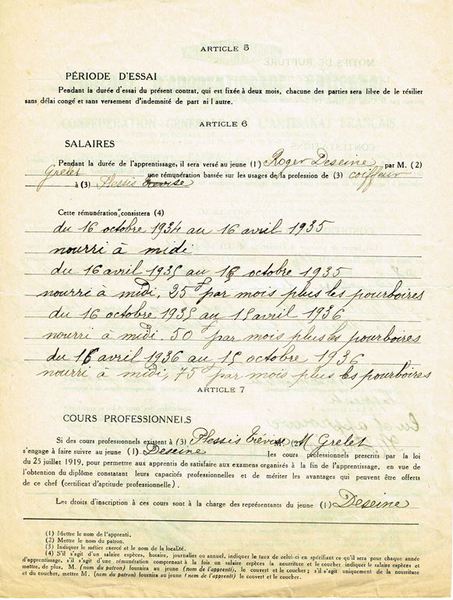 ARTICLE 5
PÉRIODE D'ESSAI
Pendant la durée d'essai du présent contrat, qui est fixée à deux mois, chacune des parties sera libre de le résilier
sans délai congé et sans versement d'indemnité de part ni l'autre.
ARTICLE 6
SALAIRES
Pendant la durée de l'apprentissage, il sera versé au jeune (1) Roger Deseine par M. (2)
Grelet une rémunération bassée sur les usages de la profession de (3) coiffeur
à (3) Plessis Trévise
Cette rémunération consistera (4)
du 16 octobre 1934 au 16 avril 1935
nourri à midi
du 16 avril 1935 au 16 octobre 1935
nourri à midi, 25f par mois plus les pourboires
du 16 octobre 1935 au 15 avril 1936
nourri à midi. 50f par mois plus les pourboires
du 16 avril 1936 au 15 octobre 1936
nourri à midi, 75f par mois plus les pourboires
ARTICLE 7
COURS PROFESSIONNELS
Si des cours professionnels existent à (3) Plessis Trévise M. Grelet
s'engage à faire suivre au jeune (1) Deseine les cours professionnels prescrits par la loi
du 25 juillet 1919, pour permettre aux apprentis de satisfaire aux examens organisés à la fin de l'apprentissage, en vue de
l'obtention du diplôme constatant leurs capacités professionnelles et de mériter les avantages qui peuvent être offerts
de ce chef (certificat d'aptitude professionnelle).
Les droits d'inscription à ces cours sont à la charge des représentants du jeune (1) Deseine
(1) Mettre le nom de l'apprenti.
(2) Mettre le nom du patron.
(3) Indiquer le métier exercé et le nom de la localité.
(4) S'il s'agit d'un salaire espèces, horaire, journalier ou annuel, indiquer le taux de celui-ci en spécifiant ce qu'il sera pour chaque année
d'apprentissage, s'il s'agit d'une rémunération comprenant à la fois un salaire espèces la nourriture et le coucher, indiquer le salaire espèces et
mettre, de plus, M. (nom du patron) fournira au jeune (nom de l'apprenti), le couvert et le coucher; s'il s'agit uniquement de la nourriture
et du coucher, mettre M. (nom du patron) fournira au jeune (nom de l'apprenti) le couvert et le coucher.